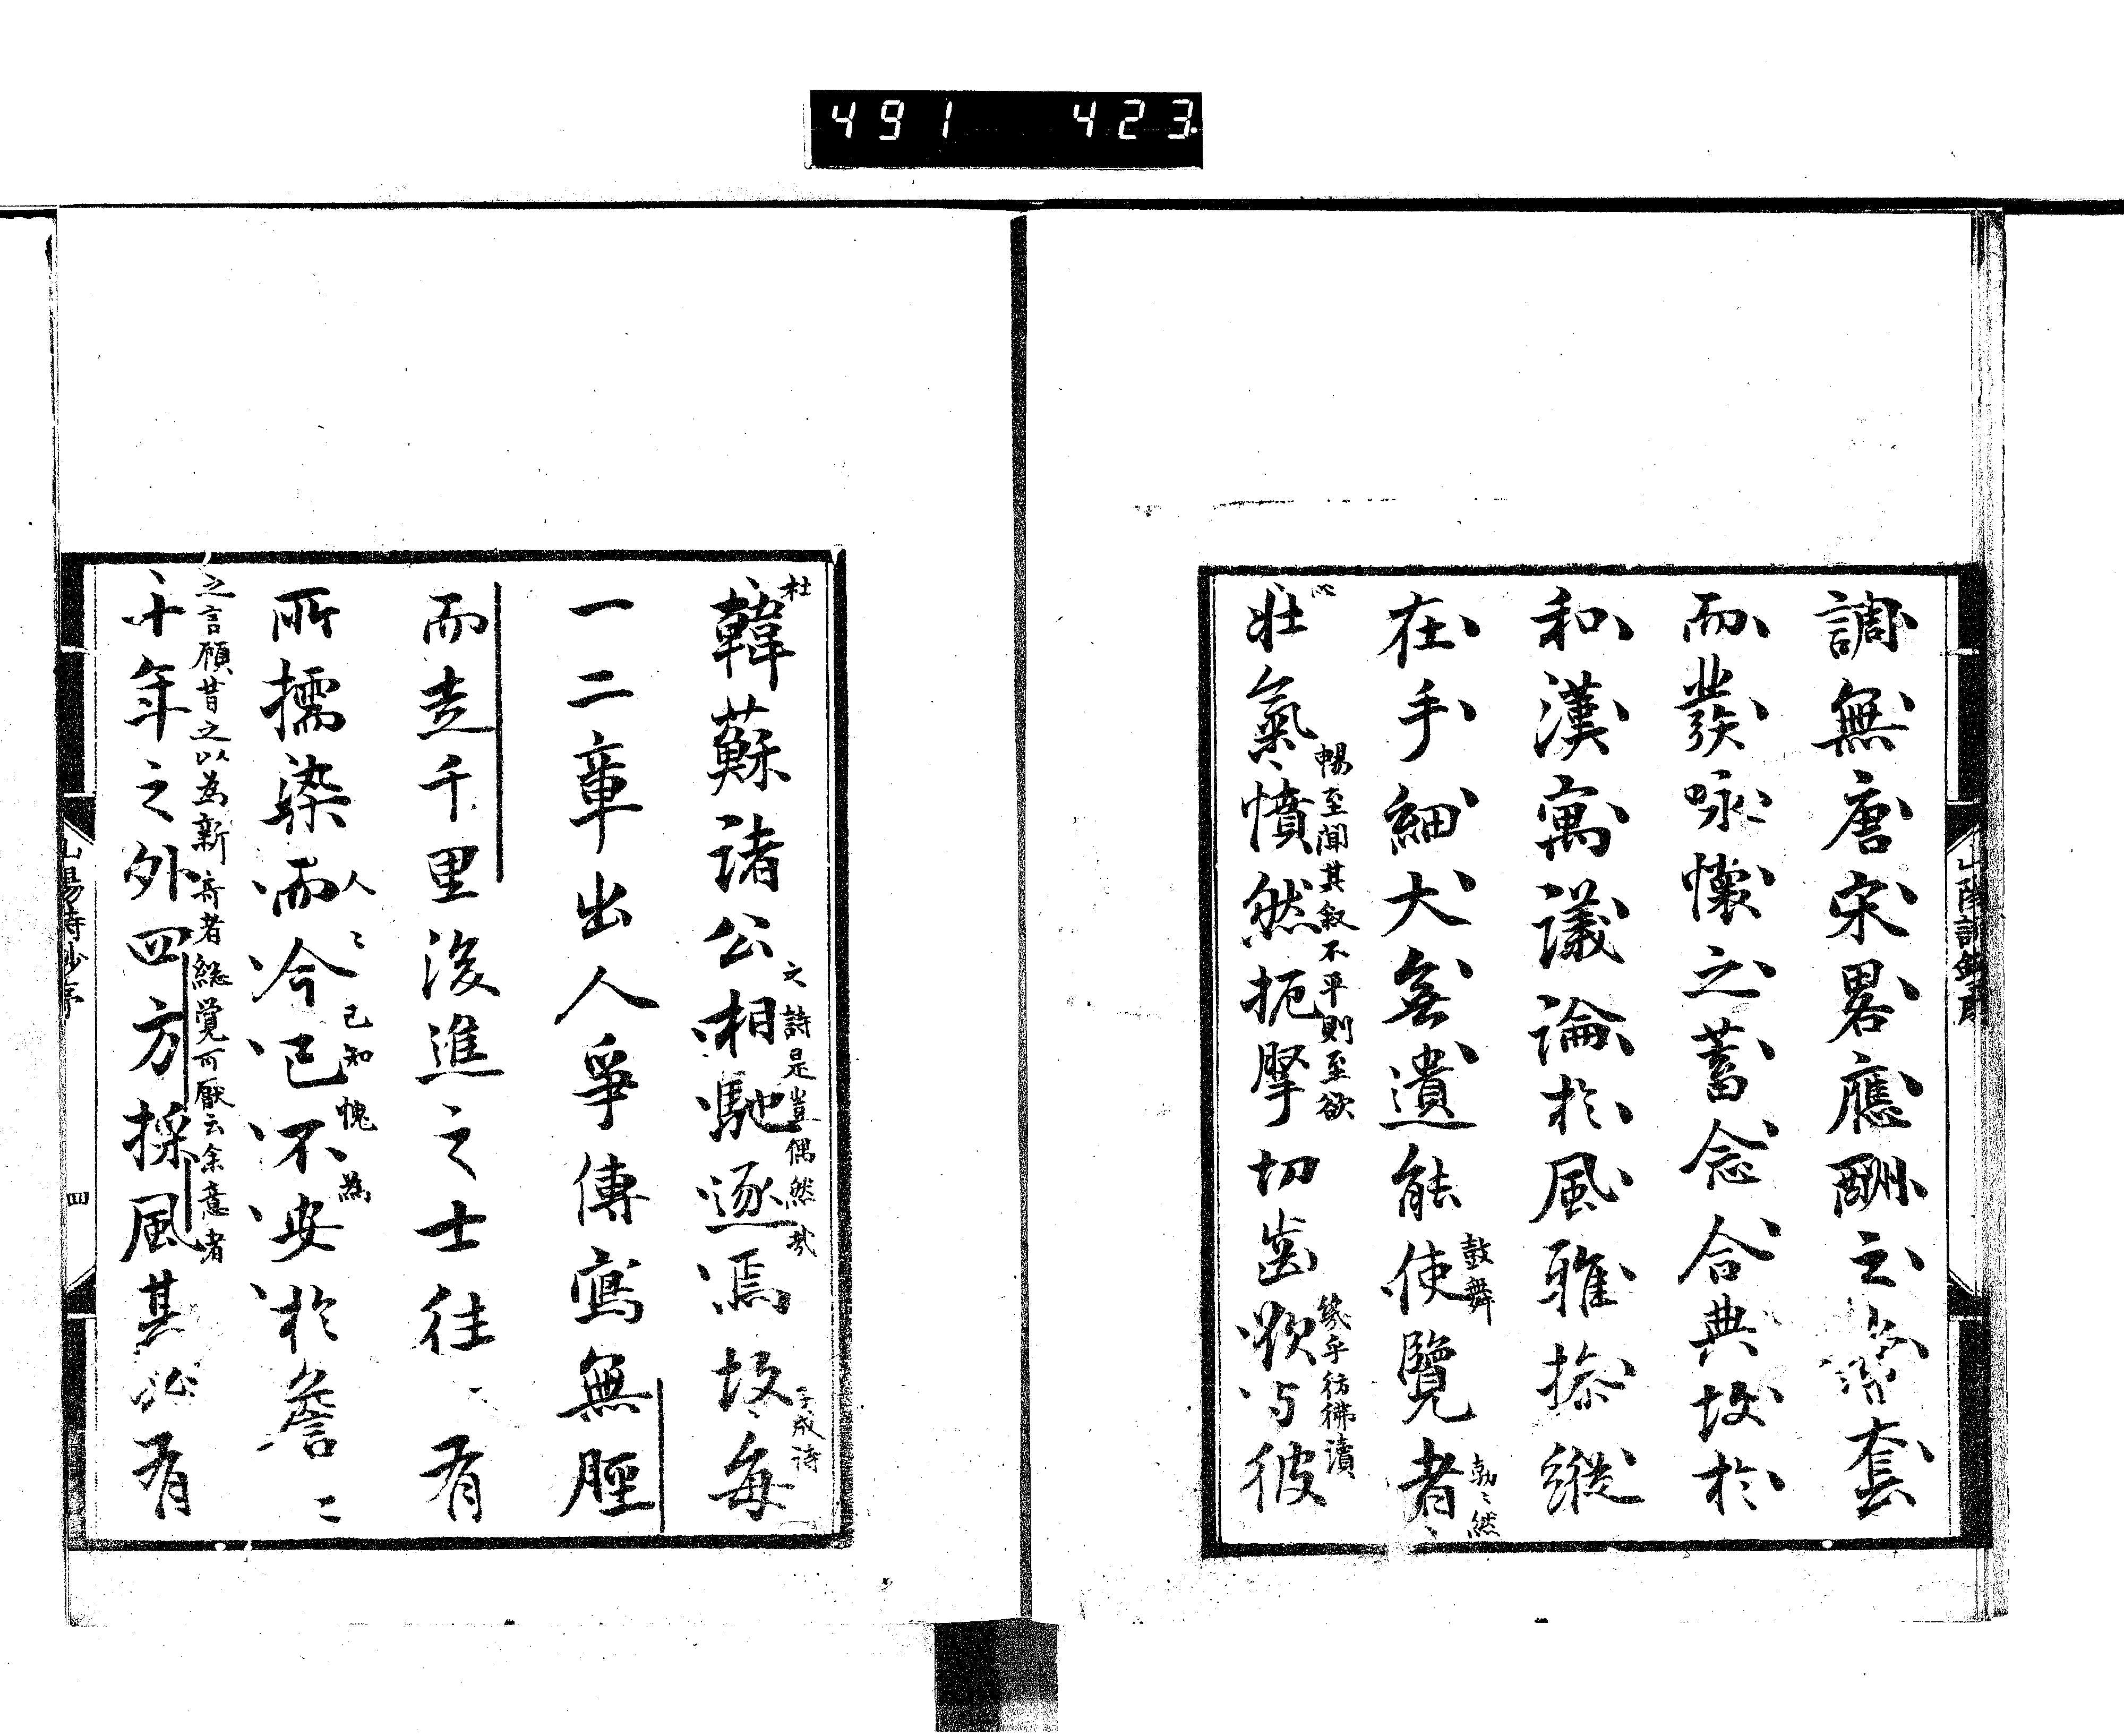 491 423
調無唐宋畧應酬之常套
而發咏懷之蓄念合典故於
和漢寓議論於風雅操縱
在手細大無遺能使覽者
鼓舞
勃〻然
壯氣憤然扼腕切齒欲与彼
暢至聞其叙不平則至欲
髣乎彷彿讀
韓蘇諸公相馳逐焉故每
杜
之詩是豈偶然哉
子成詩
一二章出人爭傳寫無脛
而走千里後進之士往〻有
所擩染而今已不安於詹〻
人〻己知愧為
之言顧昔之以為新奇者総覚可厭云余意者
十年之外四方採風其必有
山陽詩鈔序
四